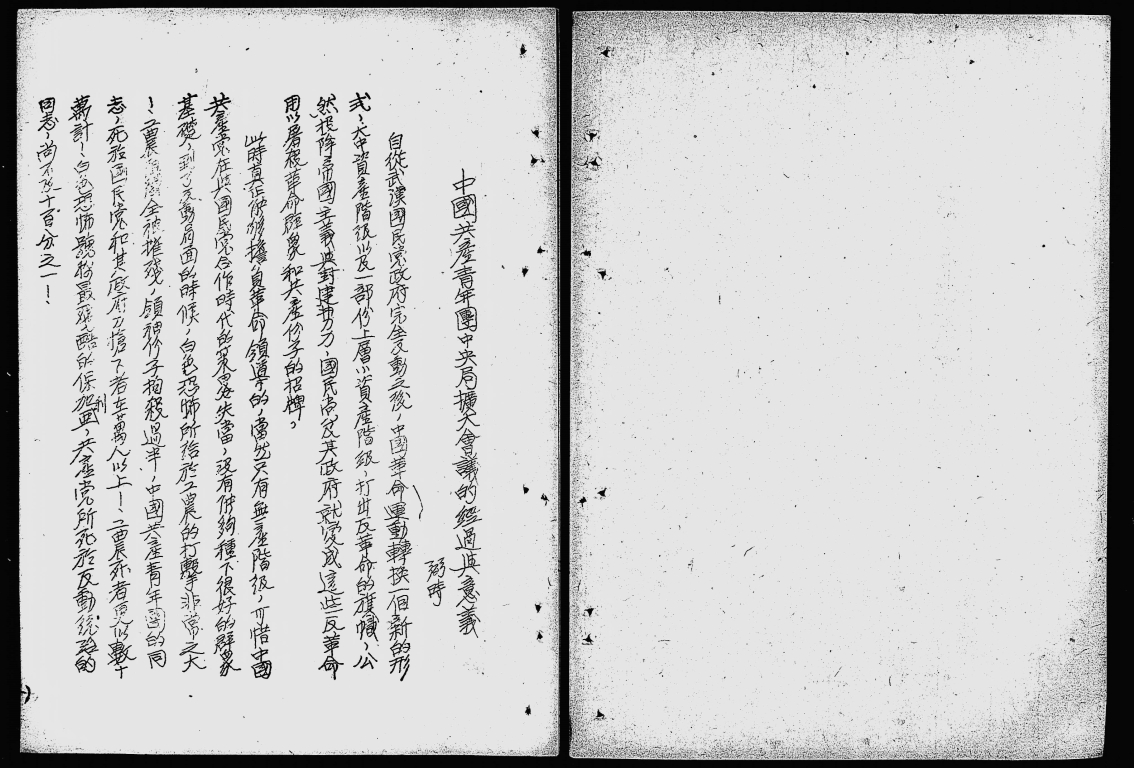 中國共產青年團中央局擴大會議的經過與意義
弼時
自從武漢國民党政府完全反動之後，中國革命運動轉換一個新的形
式，大中資產階級以及一部份上層小資產階級，打出反革命的旗幟，公
然投降帝國主義與封建勢力，國民党及其政府就變成這些反革命
用以屠殺革命群衆和共產份子的招牌。
此時真正能夠擔負革命領導的，當然只有無產階級，可惜中國
共產党在與國民党合作時代的策畧失當，沒有能夠種下很好的群衆
基礎，到了反動局面的時候，白色恐怖所給於工農的打擊非常之大
！工農 全被摧殘，領袖份子拘殺過半，中國共產青年團的同
志，死於國民党和其政府刀槍下者在萬人以上！工農死者更以數十
萬計！白色恐怖 最 酷的保加利 ，共產党所死於反動統治的
同志，尚不及十百分之一！